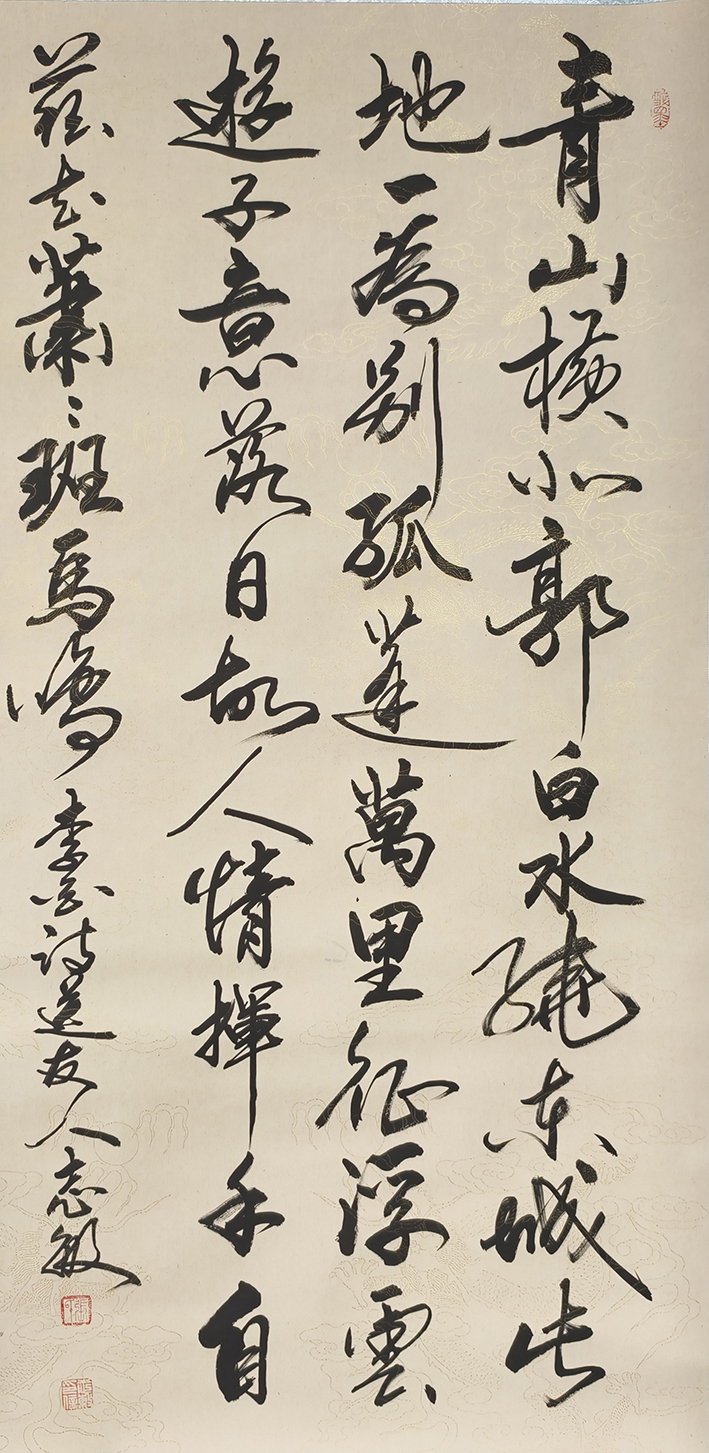 青山橫北郭白水繞東城此
地一為別孤蓬萬里征浮雲
遊子意落日故人情揮手自
茲去蕭〻班馬鳴 李白詩送友人志敏